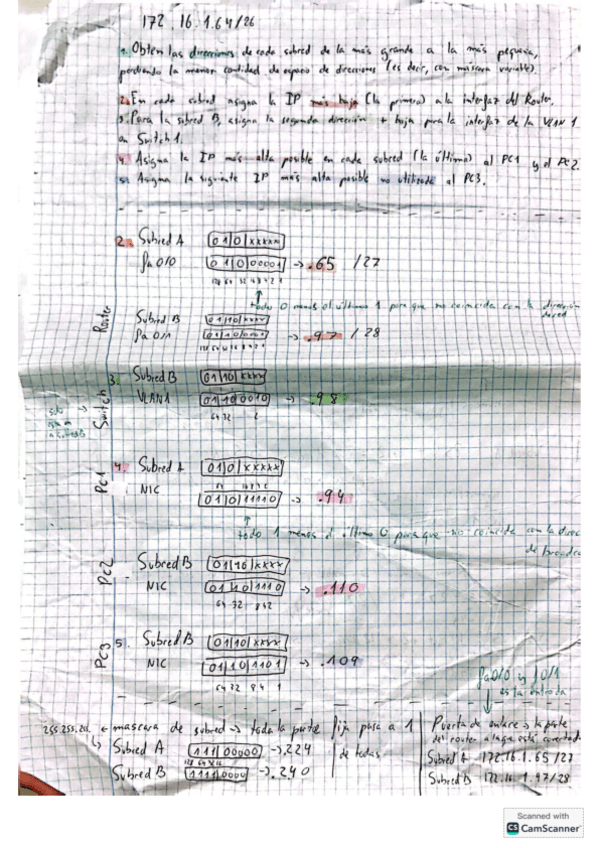 172.16.1.64/26
1. Obten las direcciones de cada subred de la más grande a la más pequeña,
perdiendo la menor cantidad de espacio de direcciones (es decir, con máscara variable).
2. En cada subred asigna la IP más baja (la primera) a la interfaz del Router.
3. Para la subred B, asigna la segunda dirección + baja para la interfaz de la VLAN 1
en Switch 1.
4. Asigna la IP más alta posible en cada subred (la última) al PC1 y el PC2.
5. Asigna la siguiente IP más alta posible no utilizada al PC3.
2. Subred A 010xxxxx
Fa 0/0 01000001 → .65 /27
128 64 32 16 8 4 2 1
todo 0 menos el último 1 para que no coincida con la dirección
de red
Router
Subred B 0110xxxx
Fa 0/1 01100001 → .97 /28
Switch
3. Subred B 0110xxxx
VLAN1 01100010 → .98
64 32 2
solo
PC1
4. Subred A 010xxxxx
NIC 01011110 → .94
todo 1 menos el último 0 para que no coincida con la direc
de broadca
PC2
Subred B 0110xxxx
NIC 01101110 → .110
64 32 8 4 2
PC3
5. Subred B 0110xxxx
NIC 01101101 → .109
64 32 8 4 1
Fa0/0 y 10/1
es la entrada
255.255.255. ← mascara de subred → toda la parte fija pasa a 1
de todas
Subred A 11100000 → .224
Subred B 11110000 → .240
Puerta de enlace → la parte
del router a la que está conectada
Subred A 172.16.1.65 /27
Subred B 172.16.1.97/28
Scanned with
CS CamScanner